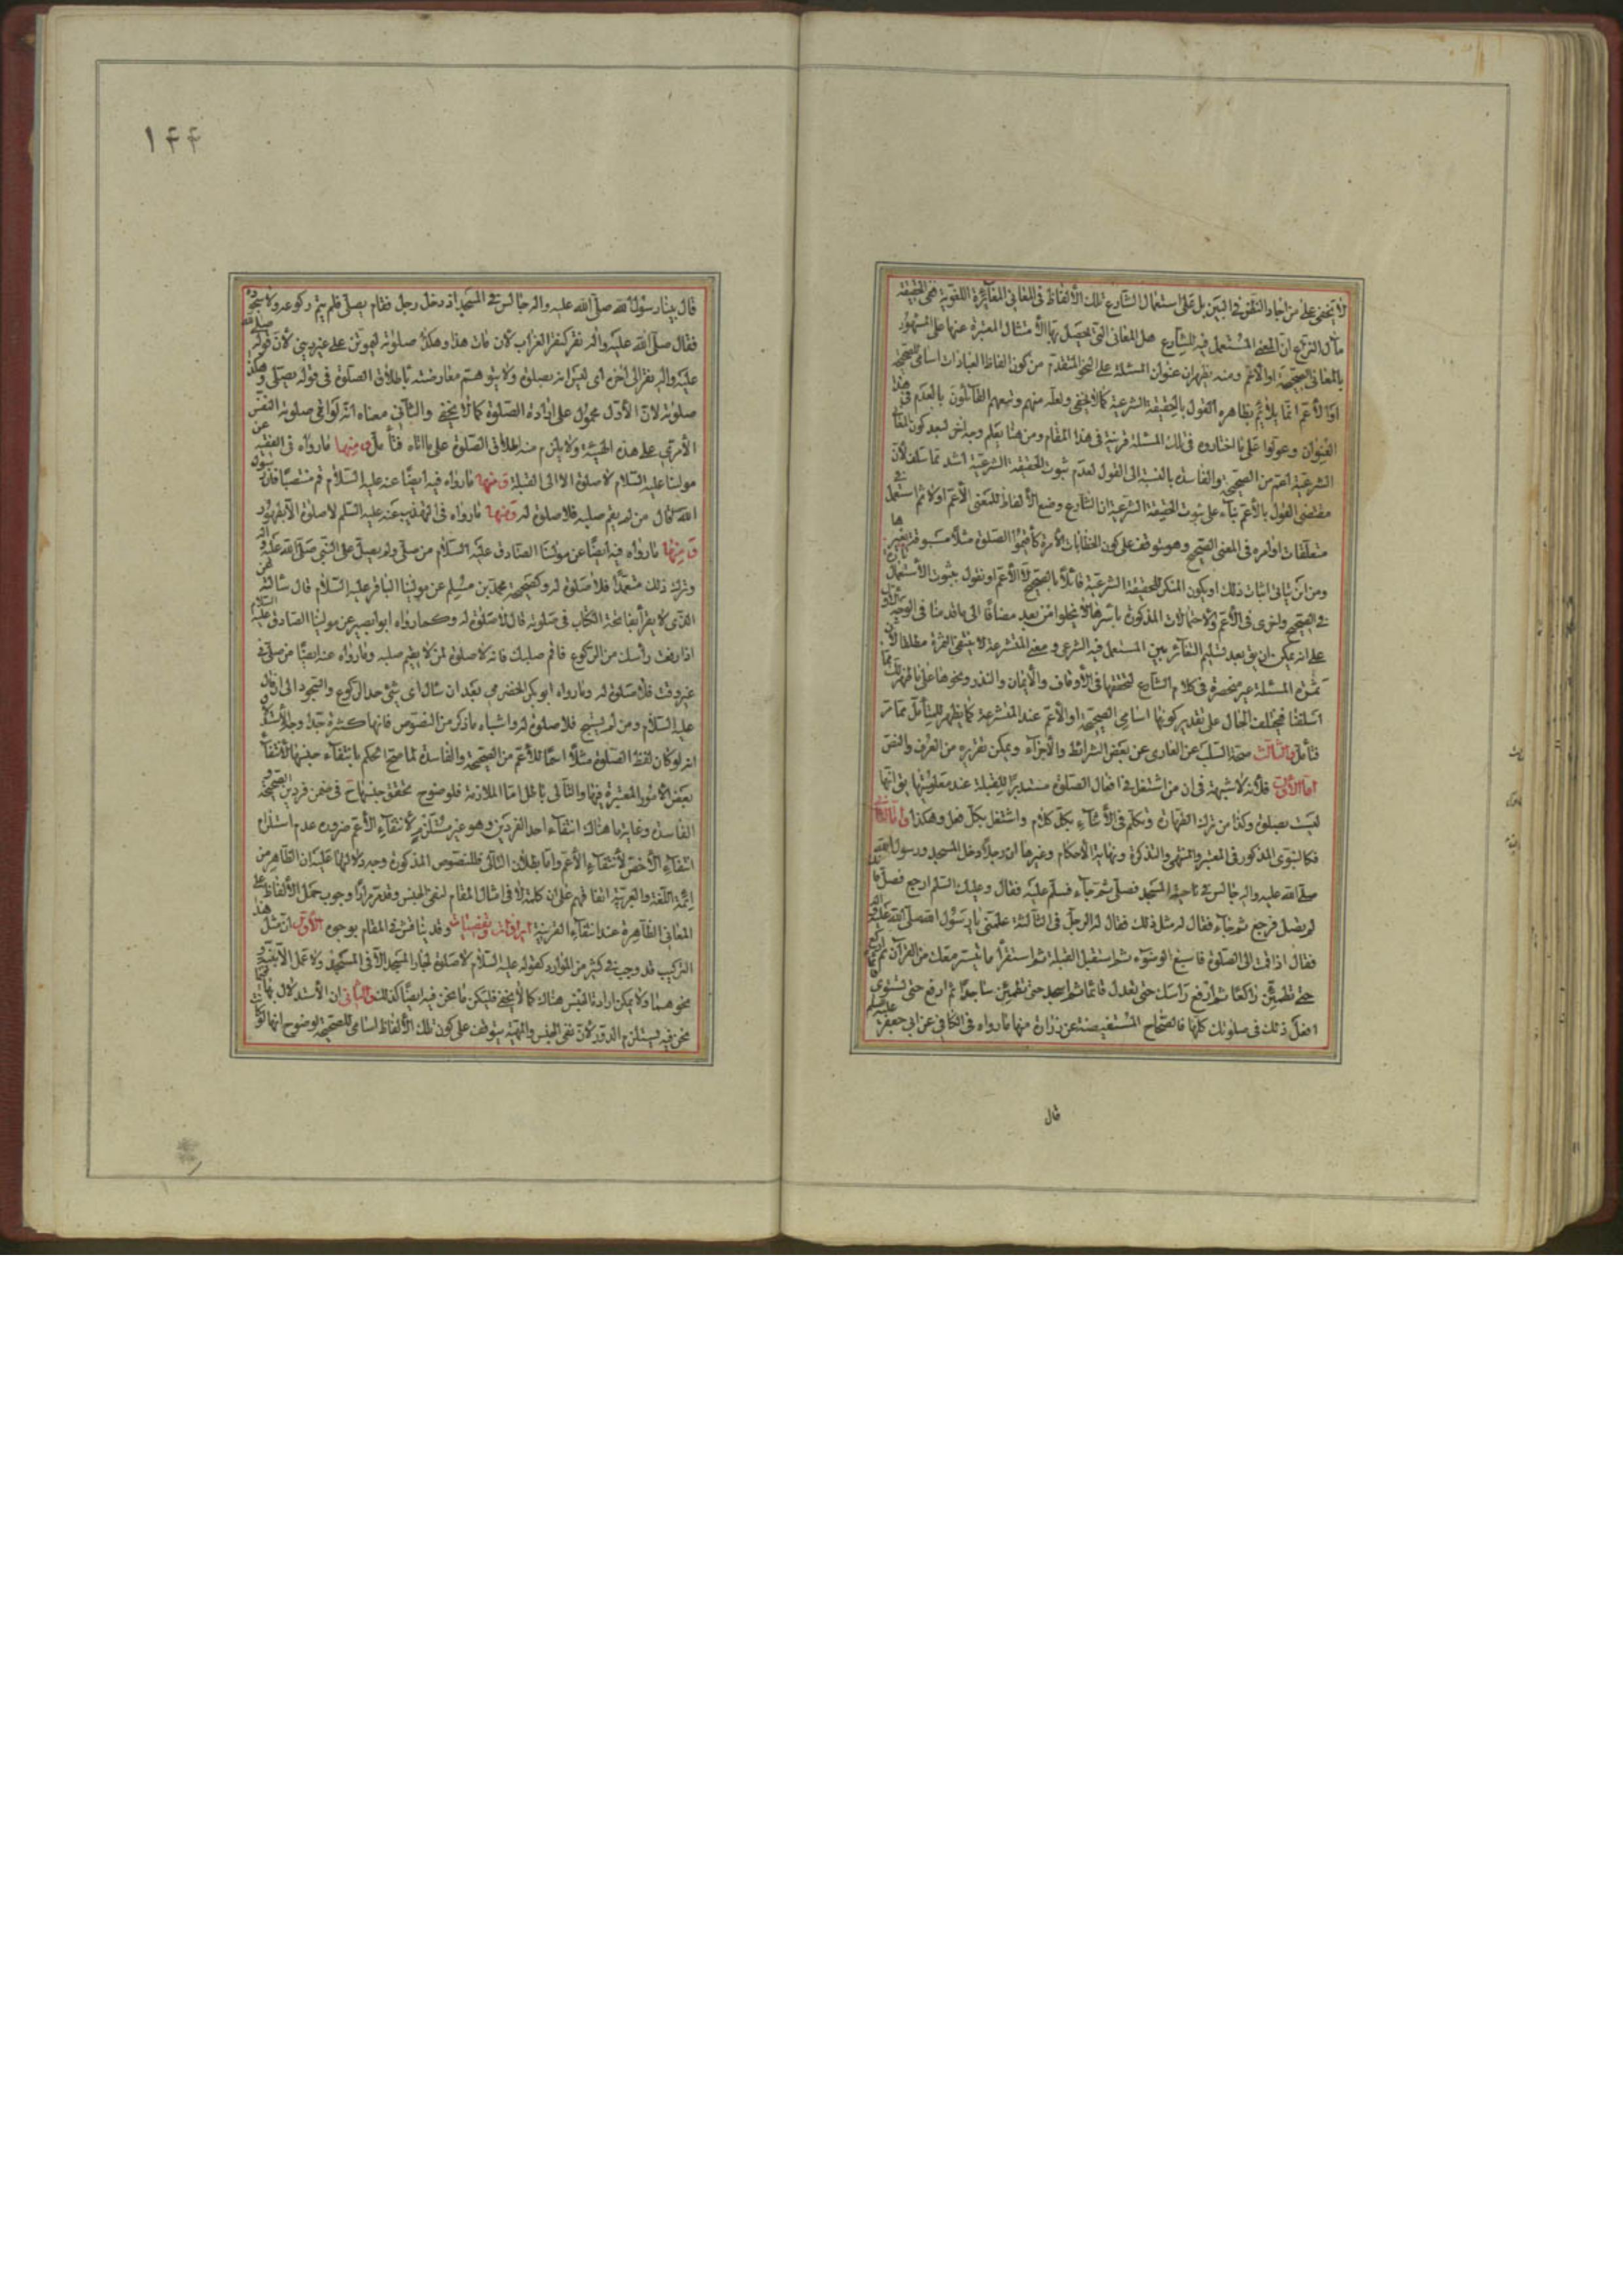 لا يخفى على من اجاد النظر في البين بل على استعمال الشارع تلك الألفاظ في المعاني المغايرة اللغوية فهي الحقيقة
مآل النزاع ان المعنى المستعمل فيه للشارع هل المعاني التي يحصل بها الأمتثال المعتبرة عنها على المشهور
بالمعاني الصحيحة او الأعم ومنه يظهر ان عنوان المسئلة على النحو المتقدم من كون الفاظ العبادات اسامي للصحيحة
او الأعم انما يلائم بظاهره القول بالحقيقة الشرعية كما لا يخفى ولعله منهم وتبعهم القائلون بالعدم في هذا
العنوان وعولوا على ما اختاروه في تلك المسئلة قرينة في هذا المقام ومن هنا يعلم وجه اخر لبعد كون
الشرعية اعم من الصحيحة والفاسدة بالنسبة الى القول لعدم ثبوت الحقيقة الشرعية اشد مما سلف لأن
مقتضى القول بالأعم بناء على ثبوت الحقيقة الشرعية ان الشارع وضع الألفاظ للمعنى الأعم اولا ثم استعمل في
متعلقات اوامره في المعنى الصحيح وهو متوقف على كون الخطابات الأمرة كأقيموا الصلوة مثلا مسبوقة بغيرها
ومن اين يتأتى اثبات ذلك او يكون المنكر للحقيقة الشرعية قائلا بالصحيح لا الأعم او نقول بثبوت الأستعمال
في الصحيح واخرى في الأعم ولاحتمالات المذكورة باسرها لا يخلوا من بعد مضافا الى ما قدمنا في الوجه
على انه يمكن ان يق بعد تسليم التغاير بين المستعمل فيه الشرعي ومعنى المتشرعة لا ينتفي الثمرة مطلقا لأن
ثمرة المسئلة غير منحصرة في كلام الشارع لتحققها في الأوقاف والأيمان والنذر ونحوها على ما ظهر لك مما
اسلفنا فيختلف الحال على تقدير كونها اسامي الصحيحة او الأعم عند المتشرعة كما يظهر للمتأمل مما مر
فتأمل والثالث صحة السلب عن العاري عن بعض الشرائط والأجزاء ويمكن تقريره من العرف والنص
اما الأول فلأنه لا شبهة في ان من اشتغل في افعال الصلوة مستدبرا للقبلة عند معلوميتها يق انها
ليست بصلوة وكذا من ترك الطهارة وتكلم في الأثناء بكل كلام واشتغل بكل فعل وهكذا واما الثاني
فكالنبوي المذكور في المعتبر والمنتهى والتذكرة ونهاية الأحكام وغيرها ان رجلا دخل المسجد ورسول الله
صلى الله عليه واله جالس في ناحية المسجد فصلى ثم جاء فسلم عليه فقال وعليك السلم ارجع فصل فانك
لم تصل فرجع ثم جاء فقال له مثل ذلك فقال له الرجل في الثالثة علمني يا رسول الله صلى الله عليه واله
فقال اذا قمت الى الصلوة فاسبغ الوضوء ثم استقبل القبلة ثم استقرأ ما تيسر معك من القرآن ثم اركع
حتى تطمئن راكعا ثم ارفع رأسك حتى تعدل قائما ثم اسجد حتى تطمئن ساجدا ثم ارفع حتى تستوي
افعل ذلك في صلوتك كلها فالصحاح المستفيضة عن زرارة منها ما رواه في الكافي عن ابي جعفر عليه السلم
قال
١٤٤
قال بينا رسول الله صلى الله عليه واله جالس في المسجد اذ دخل رجل فقام يصلي فلم يتم ركوعه ولا سجوده
فقال صلى الله عليه واله نقر كنقر الغراب لأن مات هذا وهكذا صلوته ليموتن على غير ديني لأن قوله صلى الله
عليه واله نقر الى اخره اي ليس انه بصلوة ولا يتوهم معارضته باطلاق الصلوة في قوله يصلي وهكذا
صلوته لأن الأول محمول على ارادة الصلوة كما لا يخفى والثاني معناه انه لو اتى صلوته النفس
الأمرى على هذه الهيئة ولا يلزم منه اطلاق الصلوة على ما اتاه فتأمل ومنها ما رواه في الفقيه عن
مولينا عليه السلام لا صلوة الا الى القبلة ومنها ما رواه فيه ايضا عنه عليه السلام قم منتصبا فان رسول
الله ص قال من لم يقم صلبه فلا صلوة له ومنها ما رواه في التهذيب عنه عليه السلم لا صلوة الا بطهور
ومنها ما رواه فيه ايضا عن مولينا الصادق عليه السلام من صلى ولم يصل على النبي صلى الله عليه واله
وترك ذلك متعمدا فلا صلوة له وكصحيحة محمد بن مسلم عن مولينا الباقر عليه السلام قال سألته عن
الذي لا يقرأ بفاتحة الكتاب في صلوته قال لا صلوة له وكما رواه ابو بصير عن مولينا الصادق عليه السلام
اذا رفعت رأسك من الركوع فاقم صلبك فانه لا صلوة لمن لا يقيم صلبه وما رواه عنه ايضا من صلى في
غير وقت فلا صلوة له وما رواه ابو بكر الحضرمي بعد ان سأل اي شيء حد الركوع والسجود الى ان قال
عليه السلام ومن لم يسبح فلا صلوة له واشباه ما ذكر من النصوص فانها كثيرة جدا وجه الأستدلال
انه لو كان لفظ الصلوة مثلا اسما للأعم من الصحيحة والفاسدة لما صح الحكم بانتفاء جنسها لأنتفاء
بعض الأمور المعتبرة فيها والتالي باطل اما الملازمة فلوضوح تحقق جنسها ح في ضمن فردين الصحيحة و
الفاسدة وغاية ما هناك انتفاء احد الفردين وهو غير مستلزم لانتفاء الأعم ضرورة عدم استلزام
انتفاء الأخص لأنتفاء الأعم واما بطلان التالي فللنصوص المذكورة وجه دلالتها عليه ان الظاهر من
ائمة اللغة والعربية اتفاقهم على ان كلمة لا في امثال المقام لنفي الجنس وقد مر مرارا وجوب حمل الألفاظ على
المعاني الظاهرة عند انتفاء القرينة ايرادات وتفصيات وقد يناقش في المقام بوجوه الأول ان مثل هذا
التركيب قد وجب في كثير من الموارد كقوله عليه السلام لا صلوة لجار المسجد الا في المسجد ولا عمل الا بنية و
نحوهما ولا يمكن ارادة الجنس هناك كما لا يخفى فليكن ما نحن فيه ايضا كذلك والثاني ان الأستدلال بها فيما
نحن فيه يستلزم الدور لأن نفي الجنس والمهية يتوقف على كون تلك الألفاظ اسامي للصحيحة لوضوح انها لو